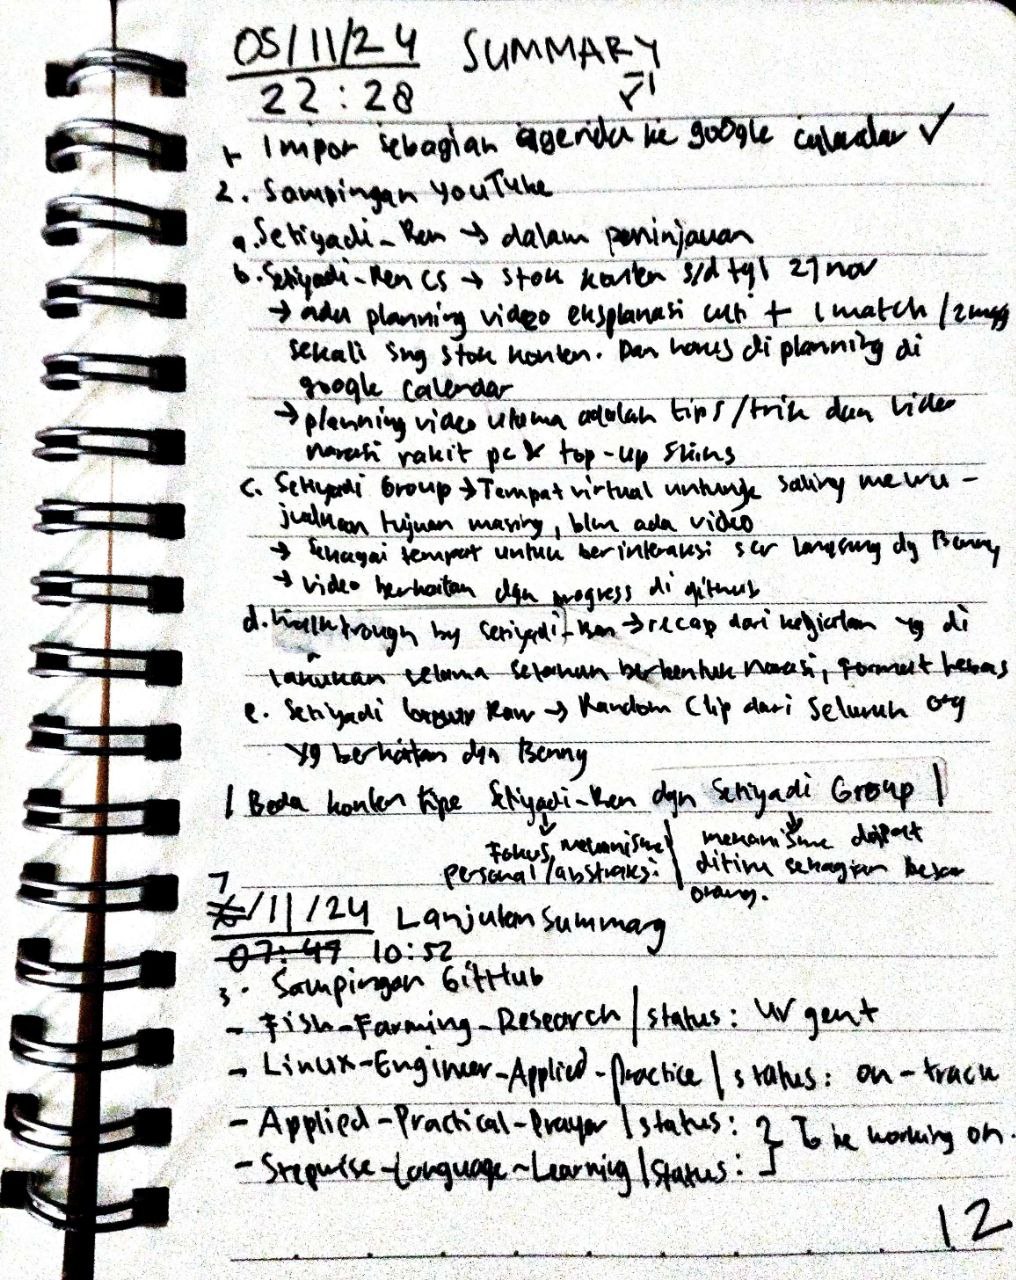 05/11/24 SUMMARY
22:28
1. Impor sebagian agenda ke google calendar ✓
2. Sampingan YouTube
a. Setiyadi-Ren → dalam peninjauan
b. Setiyadi-Ren CS → stok konten s/d tgl 27 nov
→ ada planning video eksplanasi + 1 match / 2 mgg
sekali sng stok konten. Dan harus di planning di
google calendar
→ planning video utama adalah tips/trik dan video
narasi rakit pc & top-up skins
c. Setiyadi Group → Tempat virtual untuk saling mewu-
judkan tujuan masing, blm ada video
→ Sebagai tempat untuk berinteraksi scr langsung dg Benny
→ video berkaitan dgn progress di github
d. Walktrough by Setiyadi-Ren → recap dari kegiatan yg di
lakukan selama setahun berbentuk narasi, format bebas
e. Setiyadi Group Raw → Random Clip dari Seluruh org
yg berkaitan dgn Benny
| Beda konten tipe Setiyadi-Ren dgn Setiyadi Group |
Fokus mekanisme | mekanisme dapat
personal/abstraksi. | ditiru sebagian besar
orang.
7/11/24 Lanjutan Summary
07:47 10:52
3. Sampingan GitHub
- Fish-Farming-Research | status: Urgent
- Linux-Engineer-Applied-Practice | status: on-track
- Applied-Practical-Prayer | status: } To be working on.
- Stepwise-Language-Learning | status:
12